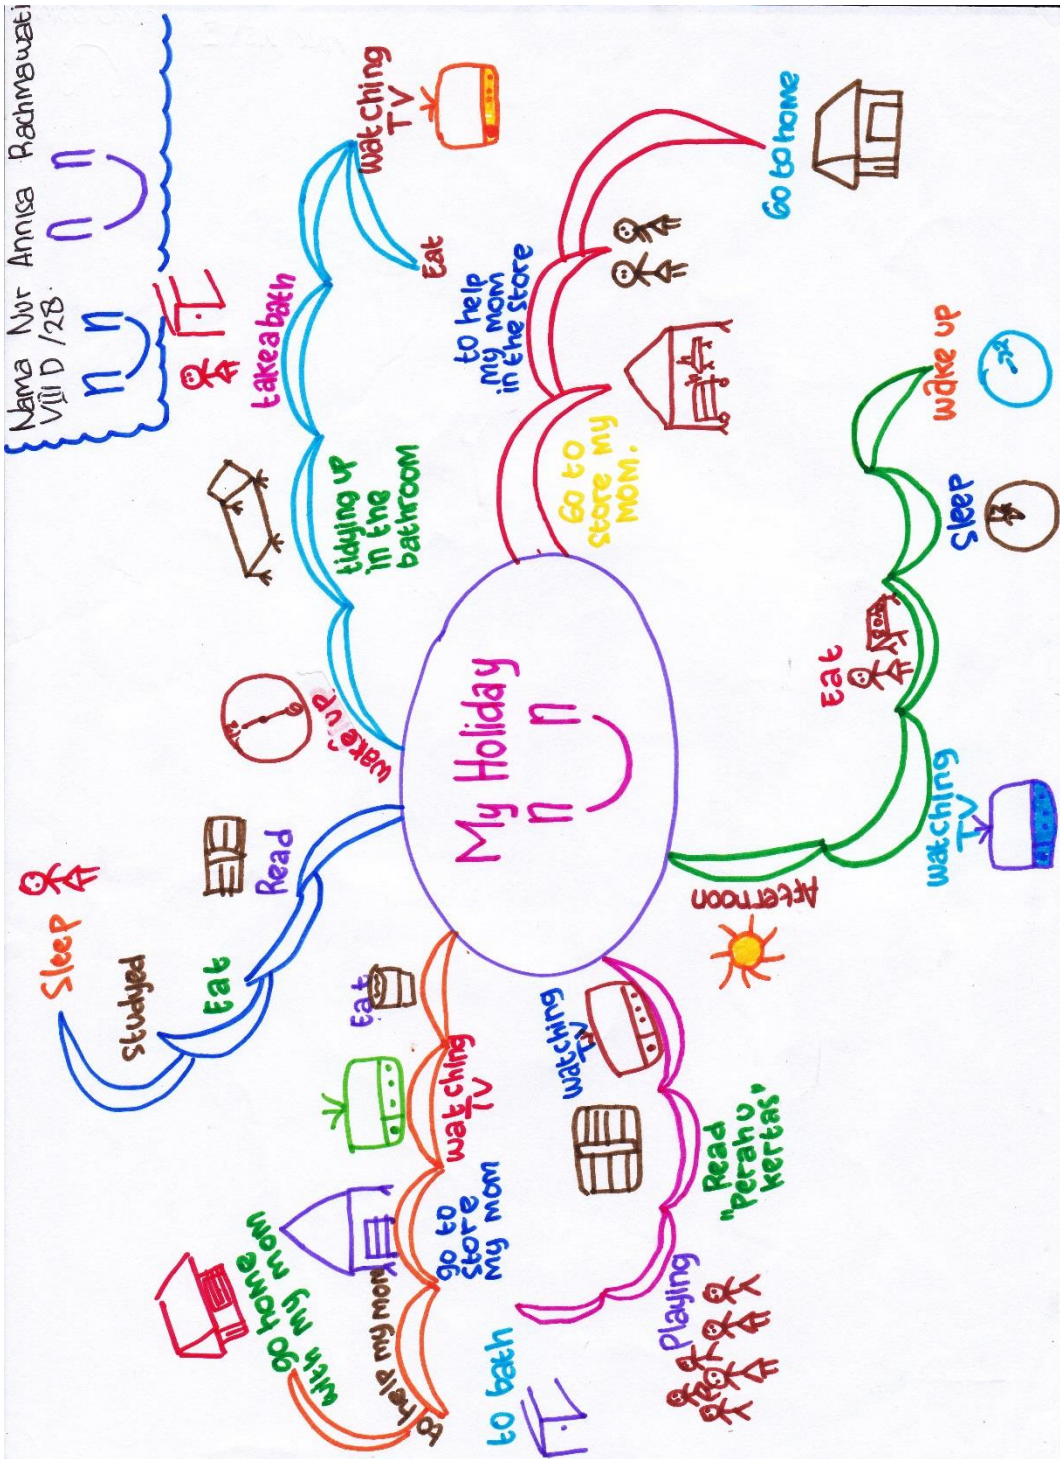 Nama Nur Annisa Rachmawati
VIII D / 28
My Holiday
wake up
tidying up
in the
bathroom
take a bath
Eat
watching
TV
Go to
store my
mom.
to help
my mom
in the store
Go to home
Afternoon
watching
TV
Eat
Sleep
wake up
watching
TV
Read
"Perahu
kertas"
Playing
to bath
Eat
watching
TV
go to
store
my mom
to help my mom
go home
with my mom
Read
Eat
Studyed
Sleep